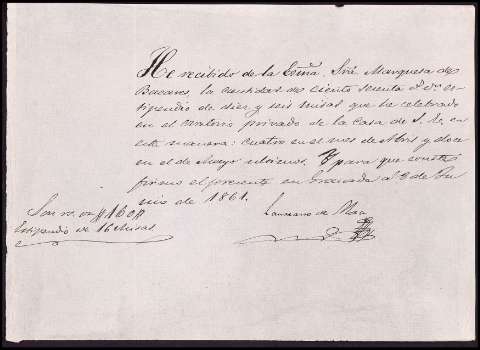 He recibido de la Exma. Sra. Marquesa de
Bacares, la cantidad de ciento sesenta rs. vn. es-
tipendio de diez y seis misas que he celebrado
en el oratorio privado de la Casa de S. E. en
esta manera: cuatro en el mes de Abril y doce
en el de Mayo últimos. Y para que conste
firmo el presente en Granada a 2 de Ju-
nio de 1861.
Laureano de
Son rs. vn. #160#
Estipendio de 16 Misas